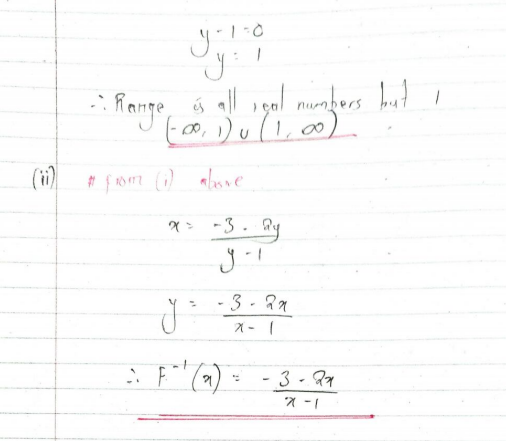 y - 1 = 0
y = 1
∴ Range is all real numbers but 1
(-∞, 1) ∪ (1, ∞)
(ii) # from (i) above
x = -3 - 2y
y - 1
y = -3 - 2x
x - 1
∴ F⁻¹(x) = -3 - 2x
x - 1